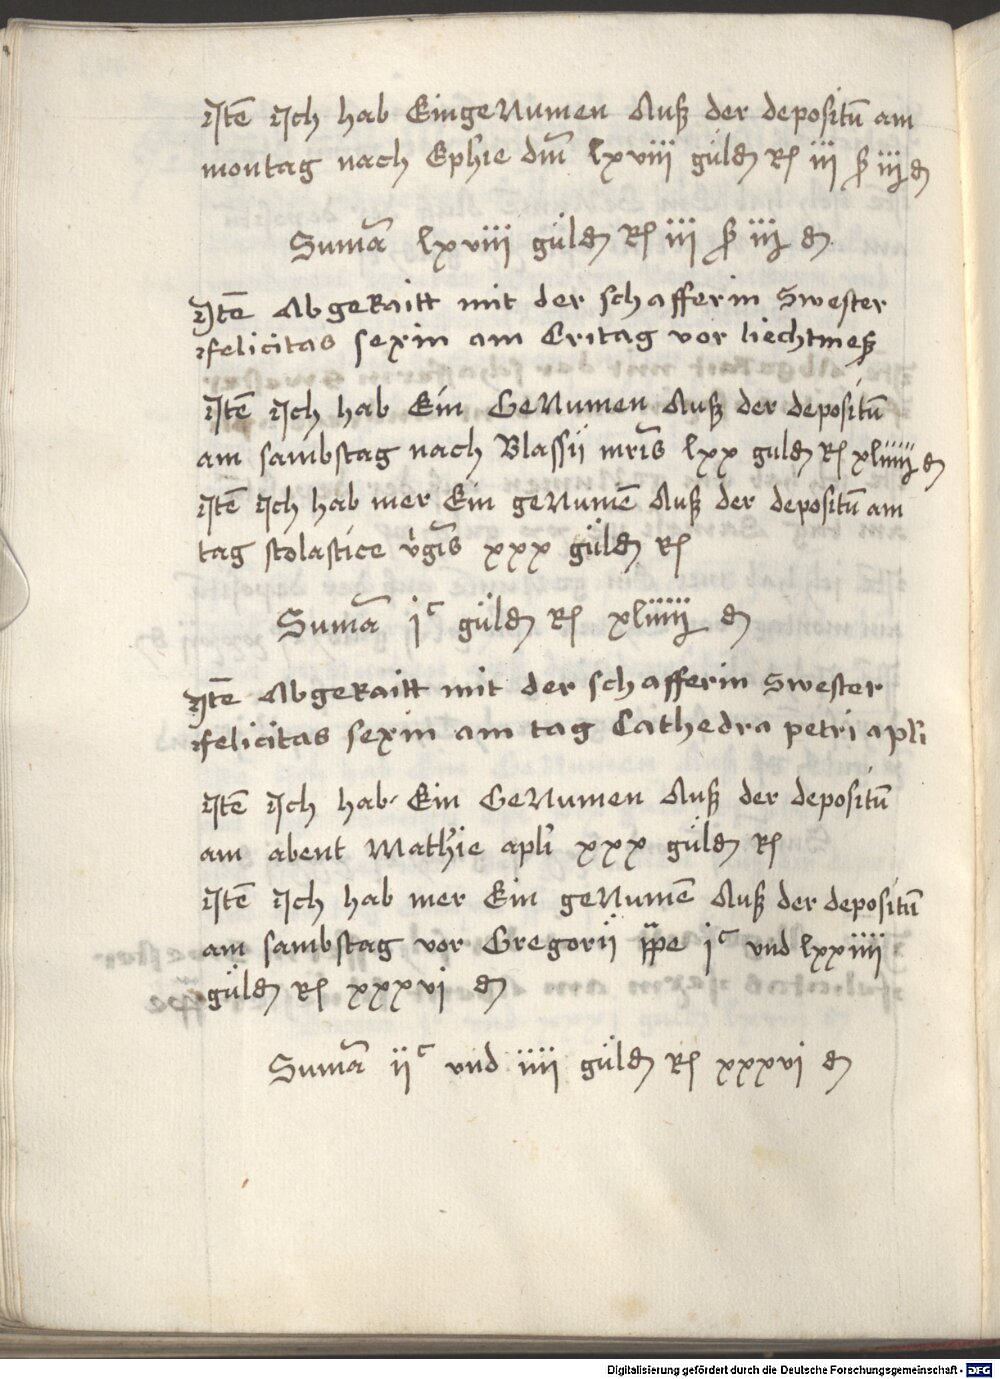 Itē Ich hab EingeNumen Auß der depositū am
montag nach Ephie dm̄ lxviii gülđ Rſ iii ß iii đ
Sumā lxviii gülđ Rſ iii ß iii đ
Itē AbgeRaitt mit der schafferin Swester
felicitas sexin am Eritag vor liechtmeß
Itē Ich hab Ein GeNumen Auß der depositū
am sambstag nach Blassii mrīs lxx gulđ Rſ xliiii đ
Itē Ich hab mer Ein geNumē Auß der depositū am
tag scolastice v̓gīs xxx gülđ Rſ
Sumā jᶜ gülđ Rſ xliiii đ
Itē AbgeRaitt mit der schafferin Swester
felicitas sexin am tag Cathedra petri apľi
Itē Ich hab Ein GeNumen Auß der depositū
am abent Mathie apľi xxx gülđ Rſ
Itē Ich hab mer Ein geNumē Auß der depositū
am sambstag vor Gregorii p̄pe jᶜ vnd lxxiiii
gülđ Rſ xxxvi đ
Sumā iiᶜ vnd iiii gülđ Rſ xxxvi đ
Digitalisierung gefördert durch die Deutsche Forschungsgemeinschaft - DFG